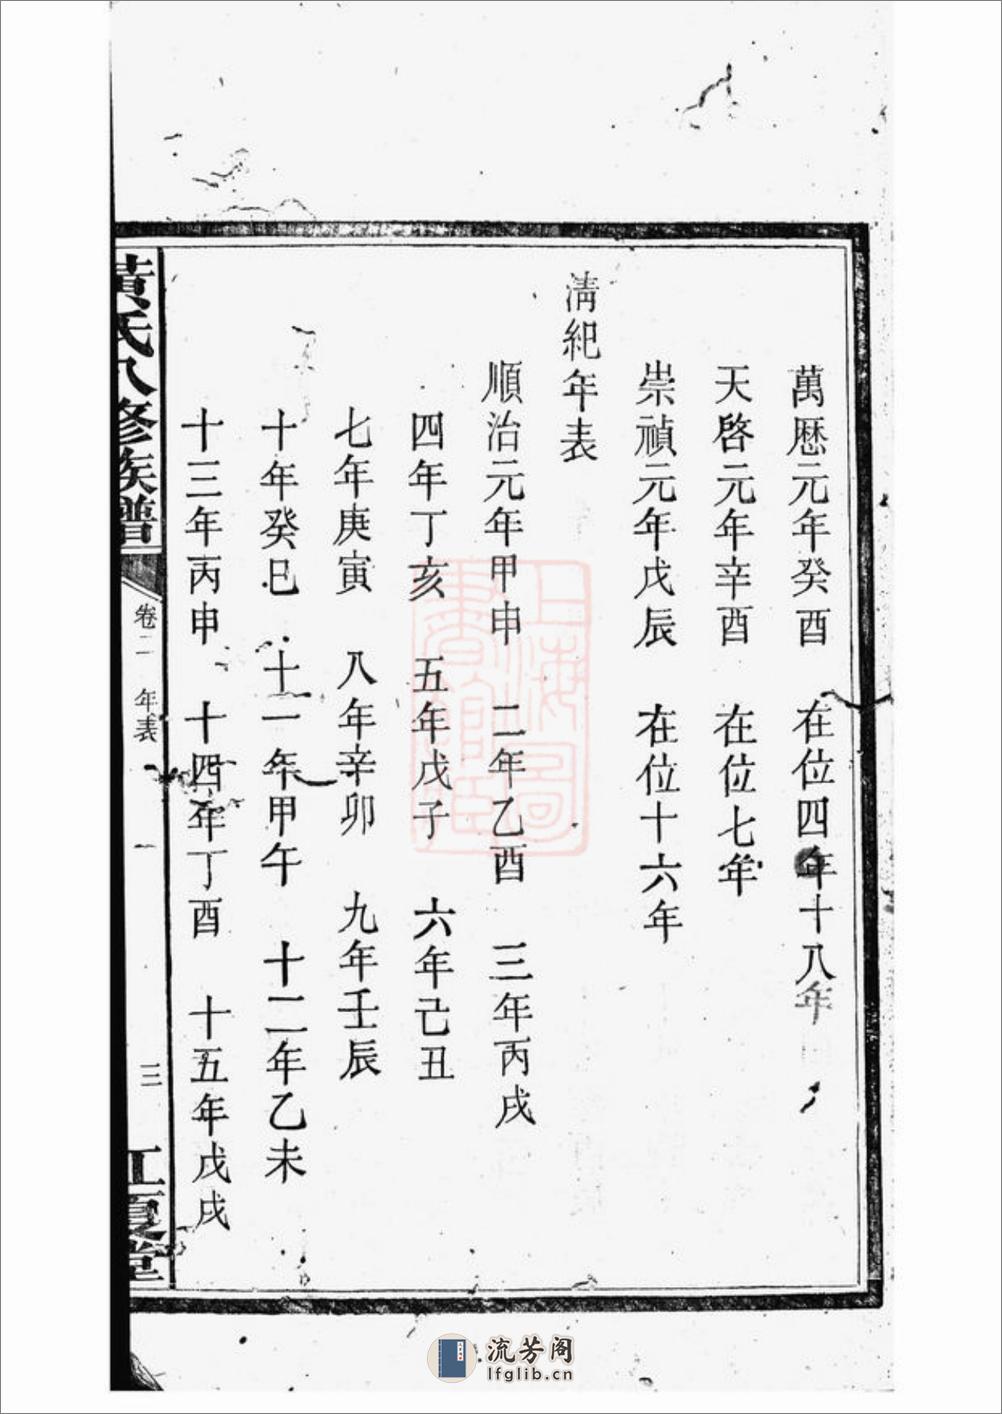 萬厯元年癸酉　在位四年十八年
天啓元年辛酉　在位七年
崇禎元年戊辰　在位十六年
淸紀年表
順治元年甲申　二年乙酉　三年丙戌
四年丁亥　五年戊子　六年己丑
七年庚寅　八年辛卯　九年壬辰
十年癸巳　十一年甲午　十二年乙未
十三年丙申　十四年丁酉　十五年戊戌
黃氏八修族譜　卷二　年表　三　江夏堂
上海圖書館藏
流芳阁
lfglib.cn